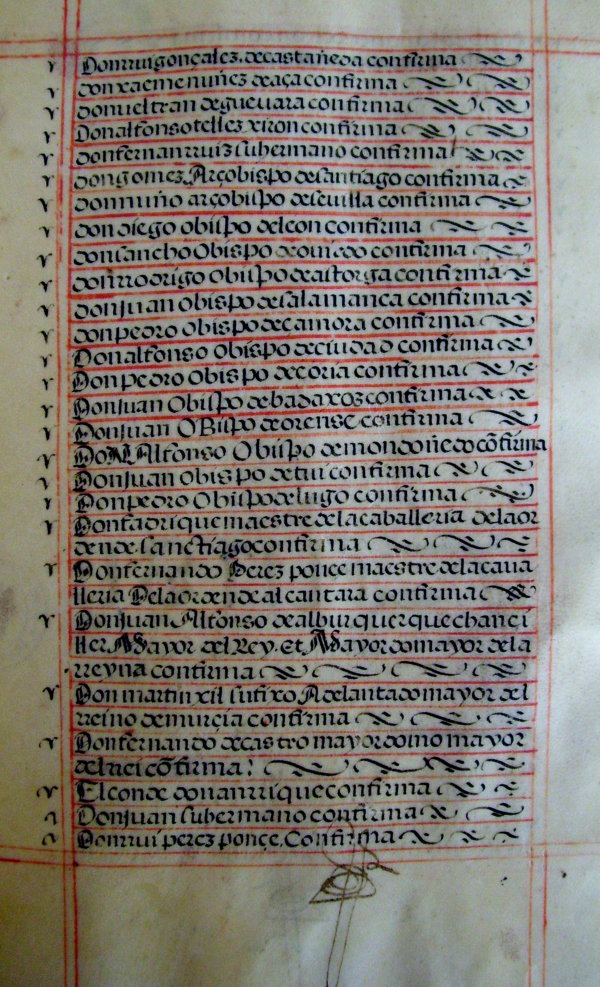 Don rrui gonçalez. de castañeda confirma
don xaeme nuñez de aça confirma
don ueltran de gueuara confirma
Don alfonso tellez xiron confirma
don fernan rruiz su hermano confirma
don gomez Arçobispo de santiago confirma
don nuño arçobispo de seuilla confirma
don diego obispo de leon confirma
don sancho Obispo de ouiedo confirma
don rrodrigo Obispo de astorga confirma
don juan Obispo de salamanca confirma
don pedro Obispo de camora confirma
Don alfonso Obispo de ciudad confirma
Don pedro Obispo de coria confirma
Don juan Obispo de badaxoz confirma
Don juan OBispo de orense confirma
DoN Alfonso Obispo de mondoñedo cõfirma
Don juan Obispo de tui confirma
Don pedro Obispo de lugo confirma
Don fadrique maestre de la caballeria de la or
den de. sanctiago confirma
Don fernando Perez ponce maestre de la caua
lleria De la orden de alcantara confirma
Don juan Alfonso de alburquerque chanci
ller Mayor del Rey. et Mayordomo mayor de la
rreyna confirma
Don martin xil su fixo Adelantado mayor del
rreino de murcia confirma
Don fernando de castro mayordomo mayor
del rrei cõfirma:
El conde don anrrique confirma
Don juan su hermano confirma
Don rrui perez ponçe. Confirma